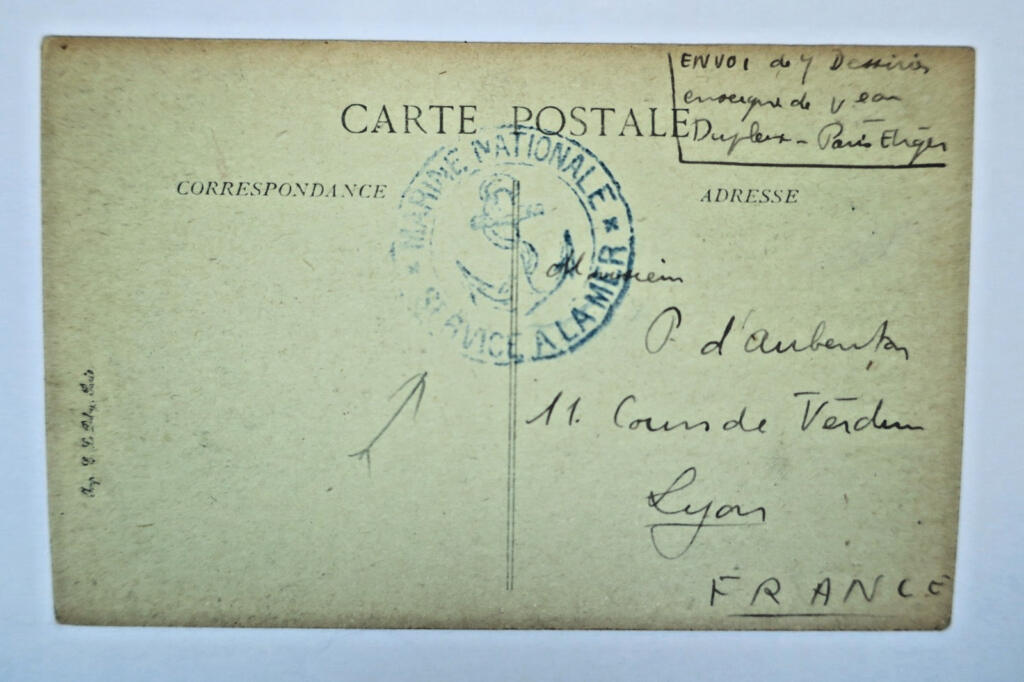 ENVOI de
enseigne de V
Dupleix - Paris
CARTE POSTALE
CORRESPONDANCE
ADRESSE
* MARINE NATIONALE *
SERVICE A LA MER
Monsieur
P. d'Aubenton
11. Cours de Verdun
Lyon
FRANCE